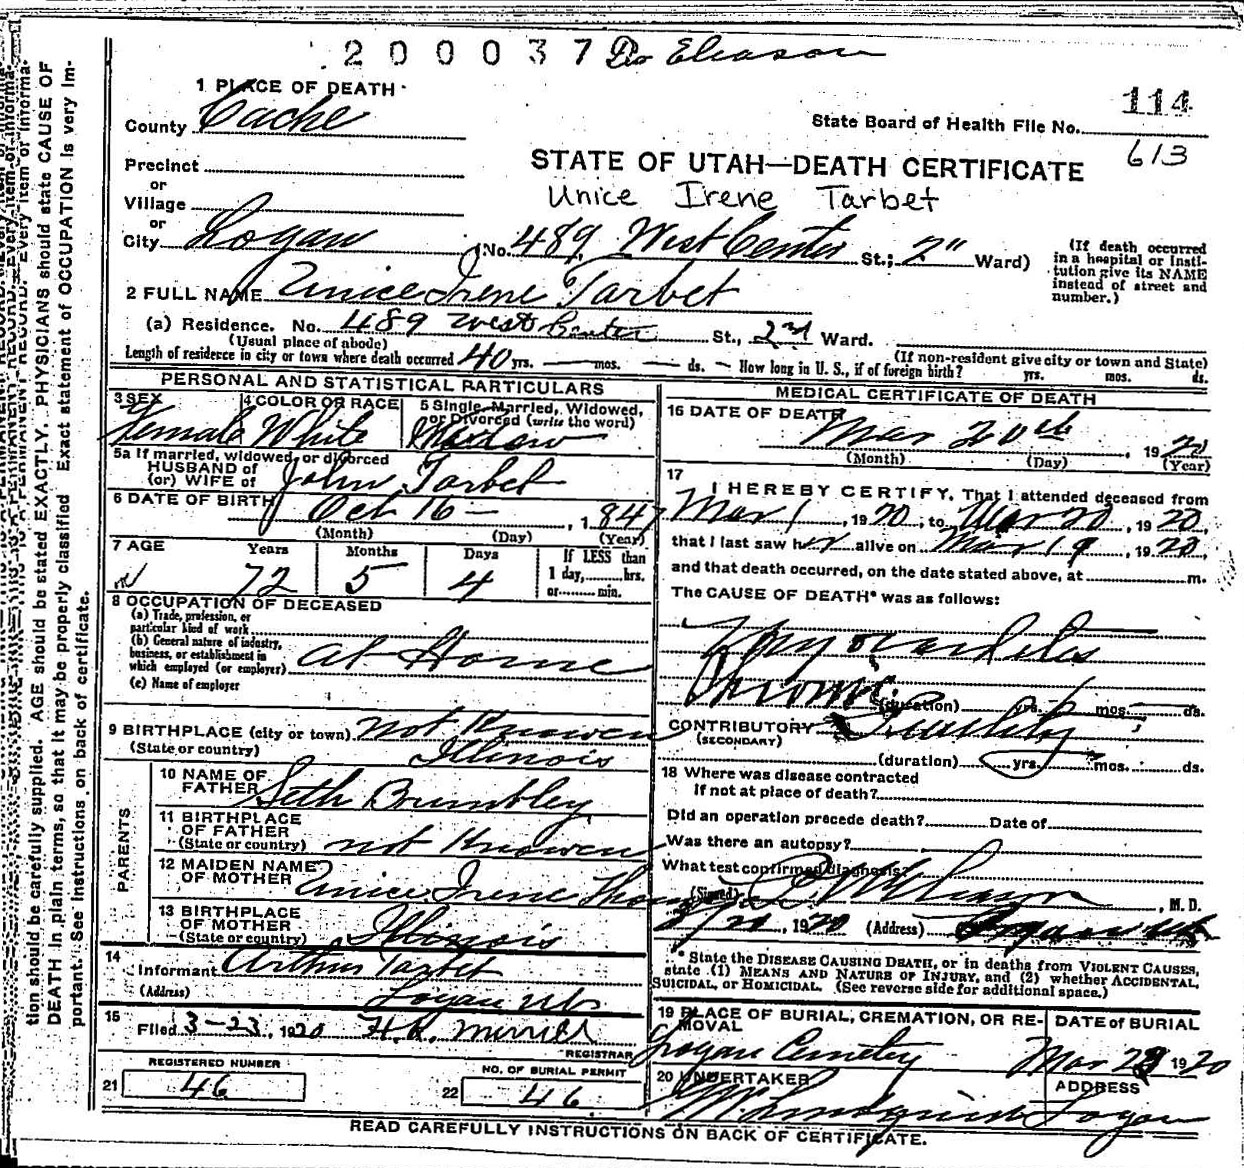 200037 Dr Eliason
1 PLACE OF DEATH
County Cache
State Board of Health File No. 114
613
Precinct
or
Village
or
City Logan
STATE OF UTAH—DEATH CERTIFICATE
Unice Irene Tarbet
(No. 489 West Center St.; 2" Ward)
(If death occurred in a hospital or insti-
tution give its NAME
instead of street and
number.)
2 FULL NAME Unice Irene Tarbet
(a) Residence. No. 489 West Center St., 2nd Ward.
(Usual place of abode)
(If non-resident give city or town and State)
Length of residence in city or town where death occurred 40 yrs. — mos. — ds. — How long in U. S., if of foreign birth? yrs. mos. ds.
PERSONAL AND STATISTICAL PARTICULARS
3 SEX
Female
4 COLOR OR RACE
White
5 Single, Married, Widowed,
or Divorced (write the word)
Widow
5a If married, widowed, or divorced
HUSBAND of
(or) WIFE of John Tarbet
6 DATE OF BIRTH Oct 16 — , 1847
(Month) (Day) (Year)
7 AGE Years Months Days If LESS than
1 day,......hrs.
or.......min.
72 5 4
8 OCCUPATION OF DECEASED
(a) Trade, profession, or
particular kind of work
(b) General nature of industry,
business, or establishment in
which employed (or employer) at Home
(c) Name of employer
9 BIRTHPLACE (city or town) not Knowen
(State or country) Illinois
PARENTS
10 NAME OF
FATHER Seth Brumbley
11 BIRTHPLACE
OF FATHER
(State or country) not Knowen
12 MAIDEN NAME
OF MOTHER Unice Irene
13 BIRTHPLACE
OF MOTHER
(State or country) Illinois
14
Informant Arthur Tarbet
(Address) Logan
15
Filed 3-23, 1920 H. R. Merrill
REGISTRAR
REGISTERED NUMBER
21 46
NO. OF BURIAL PERMIT
22 46
MEDICAL CERTIFICATE OF DEATH
16 DATE OF DEATH
Mar 20th, 1920
(Month) (Day) (Year)
17
I HEREBY CERTIFY, That I attended deceased from
Mar 1, 1920, to Mar 20, 1920,
that I last saw her alive on Mar 19, 1920,
and that death occurred, on the date stated above, at m.
The CAUSE OF DEATH* was as follows:
Myocarditis
Chronic
(duration) yrs. mos. ds.
CONTRIBUTORY
(SECONDARY)
(duration) yrs. mos. ds.
18 Where was disease contracted
If not at place of death?
Did an operation precede death? Date of
Was there an autopsy?
What test confirmed diagnosis?
(Signed) Eliason, M. D.
3/20, 1920 (Address) Logan
* State the DISEASE CAUSING DEATH, or in deaths from VIOLENT CAUSES,
state (1) MEANS AND NATURE OF INJURY, and (2) whether ACCIDENTAL,
SUICIDAL, or HOMICIDAL. (See reverse side for additional space.)
19 PLACE OF BURIAL, CREMATION, OR RE-
MOVAL
Logan Cemetery
DATE of BURIAL
Mar 23 1920
20 UNDERTAKER
Lindquist
ADDRESS
Logan
READ CAREFULLY INSTRUCTIONS ON BACK OF CERTIFICATE.
tion should be carefully supplied. AGE should be stated EXACTLY. PHYSICIANS should state CAUSE OF
DEATH in plain terms, so that it may be properly classified. Exact statement of OCCUPATION is very im-
portant. See instructions on back of certificate.